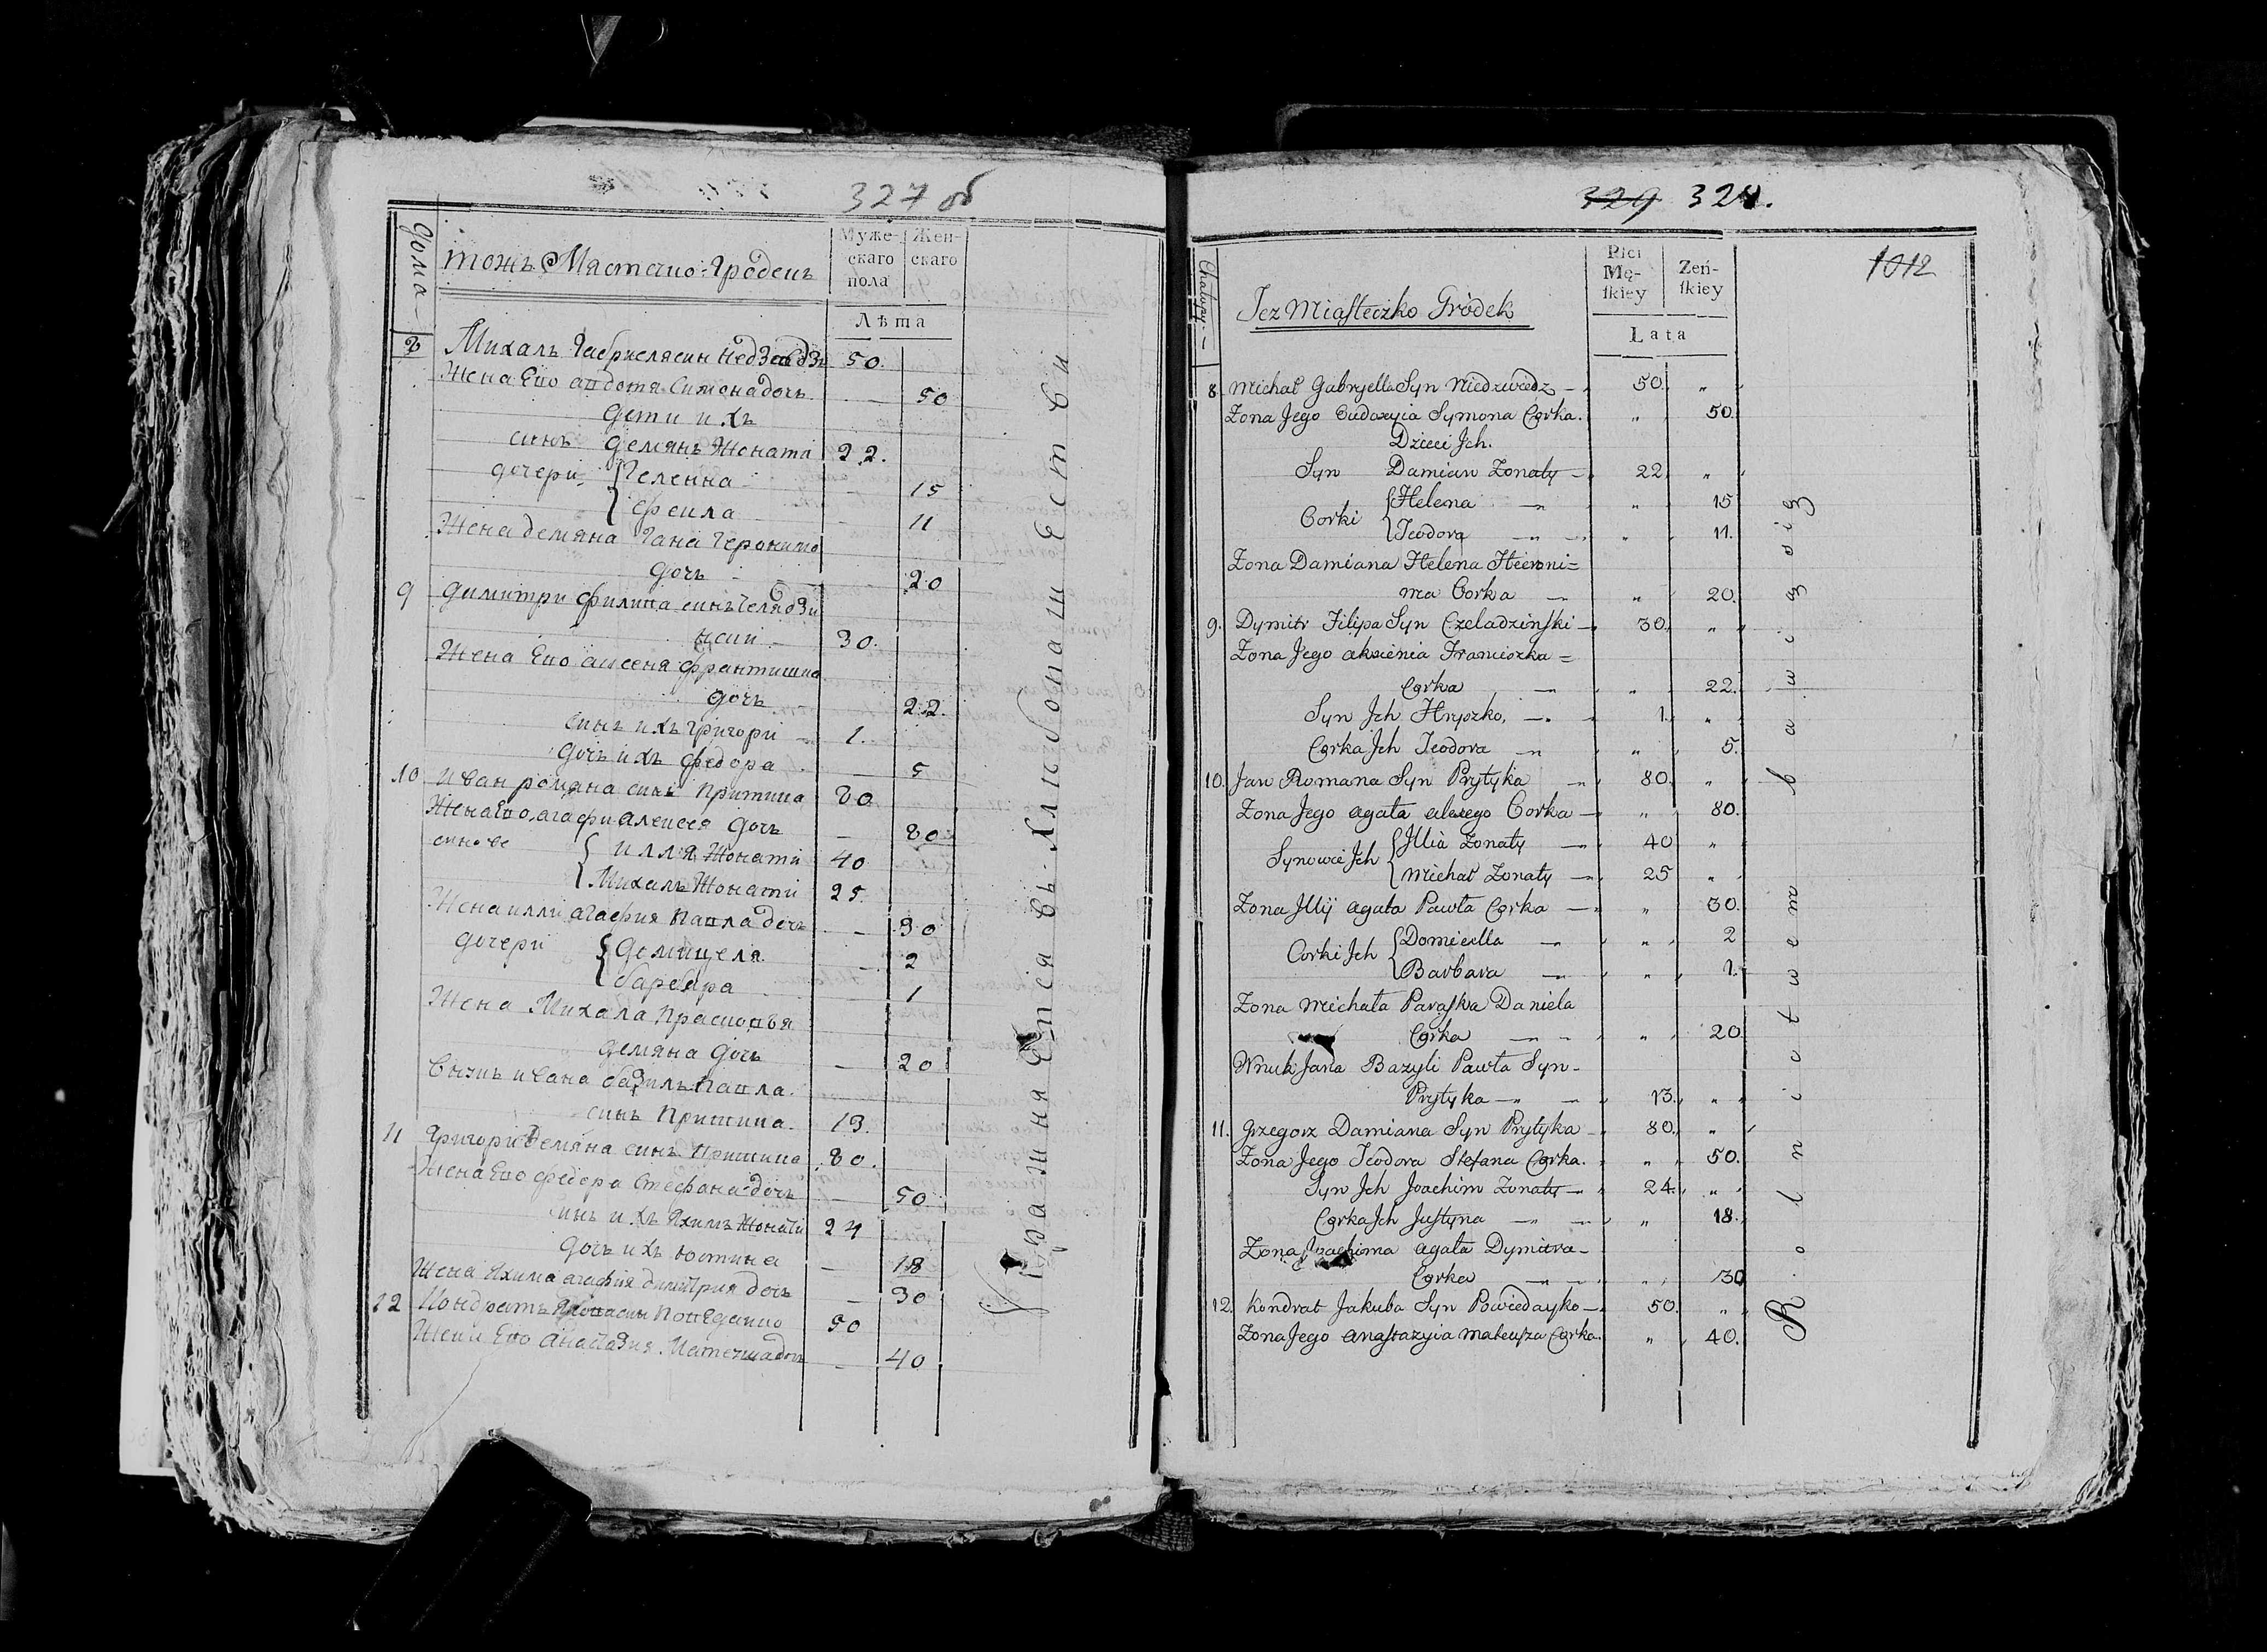 327 об
Дома
тожъ Мястечко Гродекъ
Муже-
скаго
пола
Жен-
скаго
Лѣта
8 Михалъ Габриеля син Недзведзь 50.
Жена Его апдотя Симона дочъ — 50
дети ихъ
синъ демянъ Жонати 22.
дочери { Гелення — 15
{ Феила — 11
Жена демяна Гана Геронима
дочъ — 20
9 Димитри филипа синъ Челядзи
нский 30.
Жена Его аксеня франтишка
дочъ — 22.
синъ ихъ григори 1.
дочъ ихъ федора — 5
10 Иван романа синъ Притика 80
Жена Его агафи алексея дочъ — 80
синове { илля Жонати 40
{ Михалъ Жонати 25.
Жена илли агафия павла дочъ — 30
дочери { Демицеля — 2
{ барбара — 1
Жена Михала Прасковъя
демяна дочъ — 20
Внукъ ивана базилъ павла
синъ Притика 13.
11 Григори Демяна синъ Притика 80.
Жена Его федора Стефана дочъ — 50
синъ ихъ Яхимъ Жонати 24
дочъ ихъ юстина — 18
Жена Яхима агафия димитрия дочъ — 30
12 Кондратъ Якова син Поведайко 50
Жена Его анастазия Матеуша дочъ — 40
Упражняется въ Хлибопашестви
329 324.
1012
Chałupy
Tez Miasteczko Gródek
Płci
Mę-
skiey
Żeń-
skiey
Lata
8 Michał Gabryella Syn Niedzwiedz — 50. "
Zona Jego Eudoxyia Symona Corka. " 50.
Dzieci Jch.
Syn Damian Zonaty — 22 "
Corki { Helena — " 15
{ Teodora — " 11.
Zona Damiana Helena Hieroni=
ma Corka — " 20.
9. Dymitr Filipa Syn Czeladzinski — 30. "
Zona Jego aksienia Franciszka =
Corka — " 22.
Syn Jch Hryszko, — 1. "
Corka Jch Teodora — " 5.
10. Jan Romana Syn Prytyka — 80. "
Zona Jego agata alexego Corka — " 80.
Synowie Jch { Jllia Zonaty — 40 "
{ Michał Zonaty — 25 "
Zona Jllij agata Pawła Corka — " 30.
Corki Jch { Domicella — " 2
{ Barbara — " 1.
Zona Michała Paraska Daniela
Corka — " 20.
Wnuk Jana Bazyli Pawła Syn-
Prytyka — 13. "
11. Grzegorz Damiana Syn Prytyka 80. "
Zona Jego Teodora Stefana Corka. " 50.
Syn Jch Joachim Zonaty — 24. "
Corka Jch Justyna — " 18.
Zona Joachima agata Dymitra-
Corka — " 30
12. Kondrat Jakuba Syn Powiedayko — 50. "
Zona Jego anastazyia Mateusza Corka. " 40.
Rolnictwem bawią się